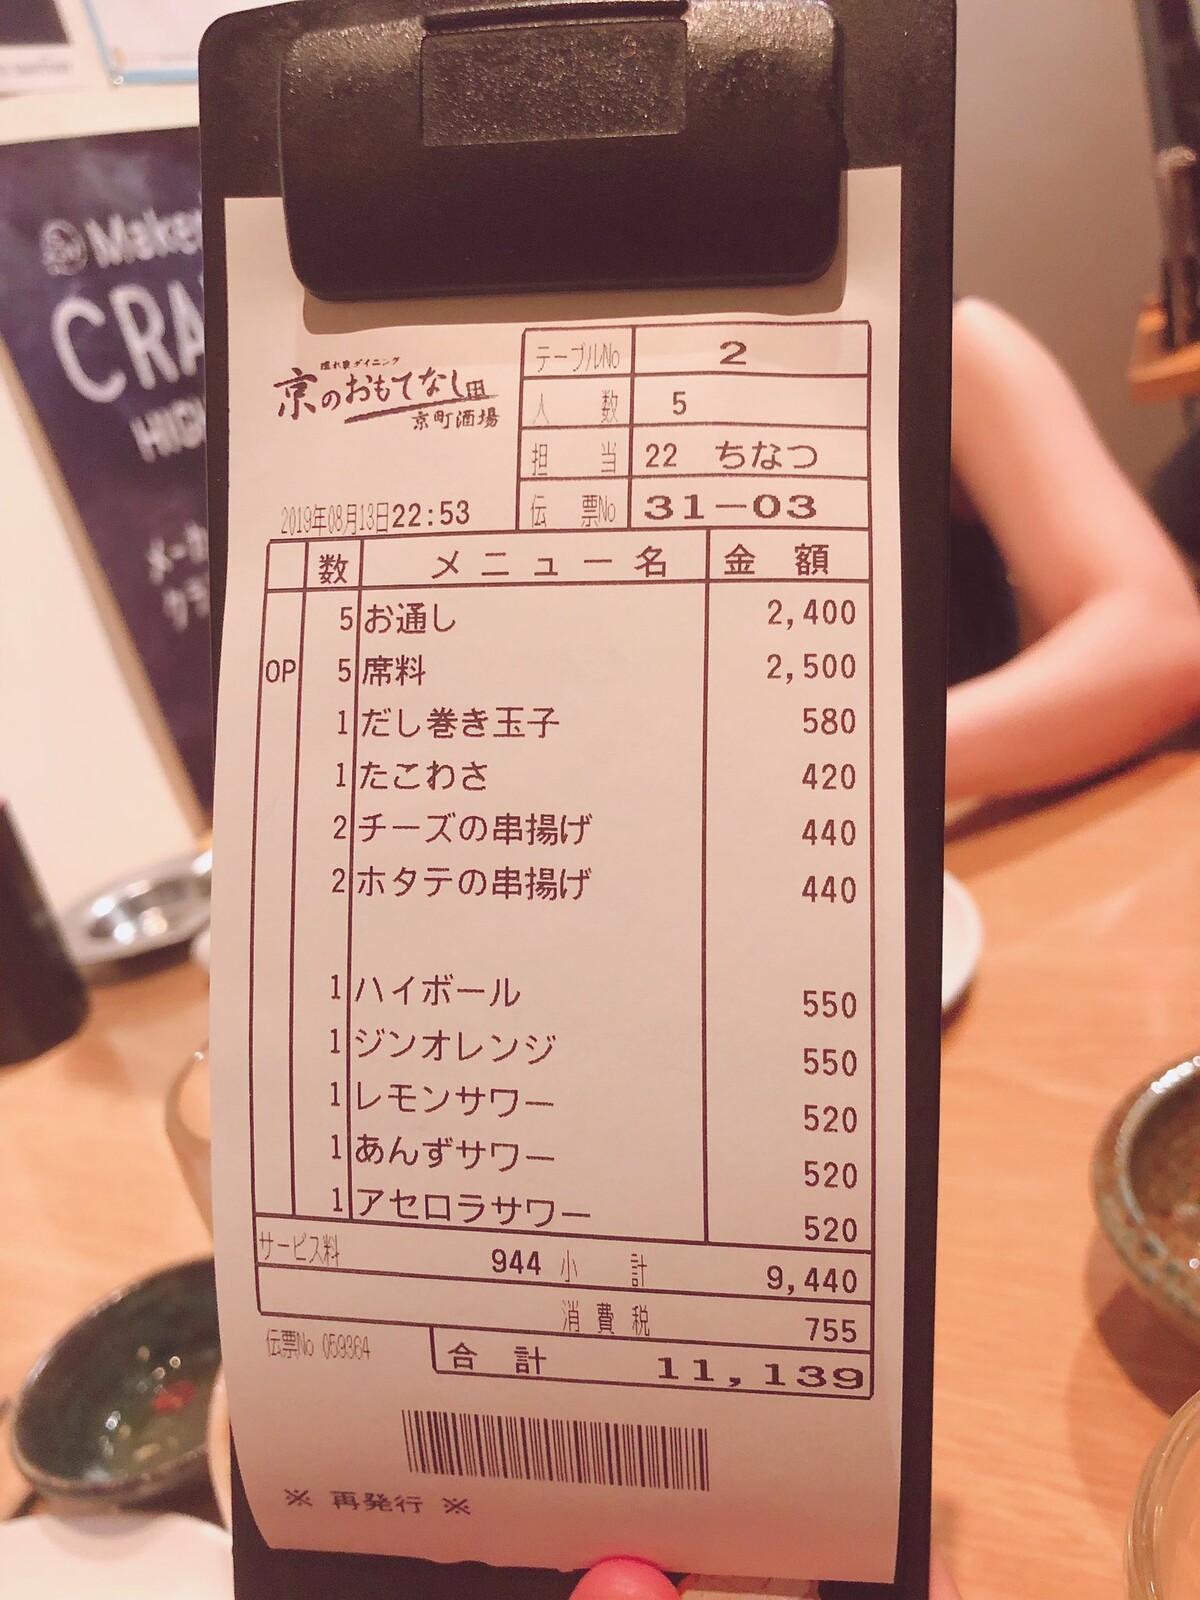 Make
CRA
HIG
メーカ
クラ
隠れ家ダイニング
京のおもてなし
京町酒場
テーブルNo 2
人数 5
担当 22 ちなつ
伝票No 31-03
2019年08月13日22:53
数 メニュー名 金額
5 お通し 2,400
OP 5 席料 2,500
1 だし巻き玉子 580
1 たこわさ 420
2 チーズの串揚げ 440
2 ホタテの串揚げ 440
1 ハイボール 550
1 ジンオレンジ 550
1 レモンサワー 520
1 あんずサワー 520
1 アセロラサワー 520
サービス料 944 小計 9,440
消費税 755
伝票No 059364
合計 11,139
※ 再発行 ※